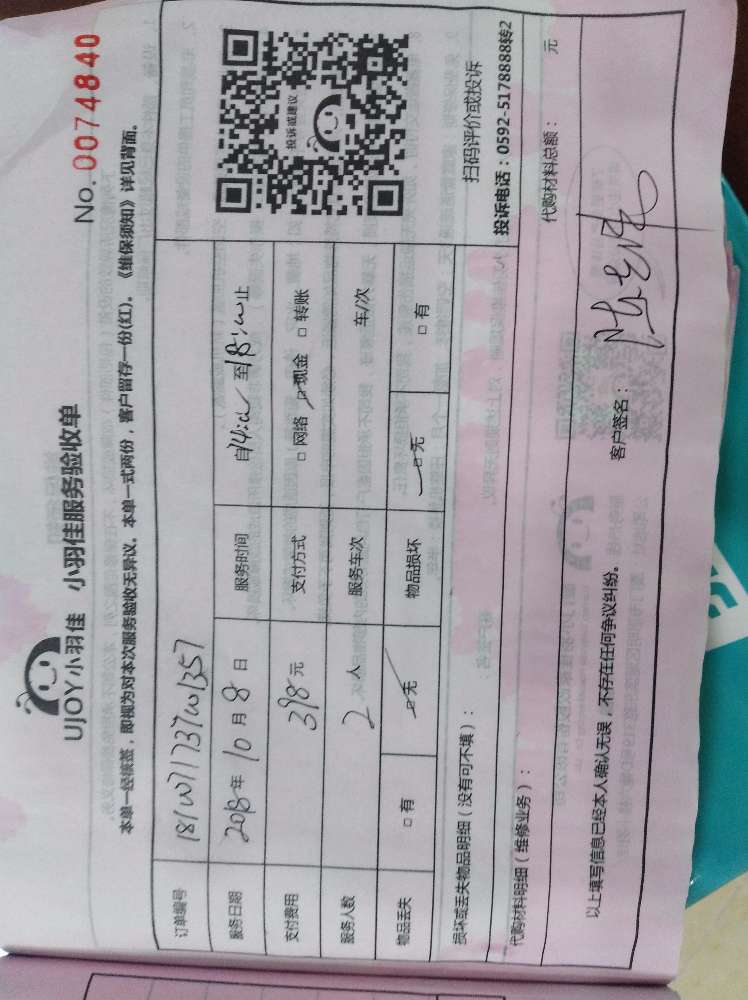 UJOY小羽佳 小羽佳服务验收单
No. 0074840
本单一经接签，即视为对本次服务验收无异议。本单一式两份，客户留存一份(红)。《维保须知》详见背面。
订单编号
服务日期 2018年 10月 8日 服务时间 自14:00至18:00止
支付费用 398元 支付方式 □网络 □现金 □转账
服务人数 2人 服务车次 车/次
物品丢失 □有 □无 物品损坏 □无 □有
投诉或建议
扫码评价或投诉
投诉电话：0592-5178888转2
损坏或丢失物品明细（没有可不填）：
代购材料明细（维修业务）： 代购材料总额： 元
以上填写信息已经本人确认无误，不存在任何争议纠纷。 客户签名：